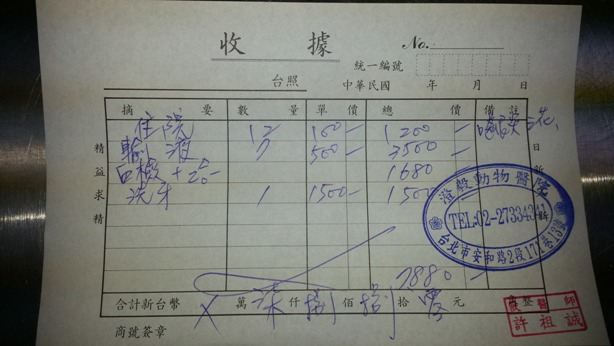 收 據
No.
統一編號
台照 中華民國 年 月 日
摘 要 數 量 單 價 總 價 備 註
住院 12 100- 1200- 花
輸液 7 500- 3500-
1680-
洗牙 1 1500- 150
精益求精
日
7880-
合計新台幣 X 萬 柒 仟 捌 佰 捌 拾 零 元 整
商號簽章
動物醫院
TEL:02-2733434
台北市安和路2段17
醫師
許祖誠